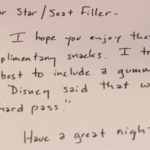 r Star/Seat Filler-
I hope you enjoy these
plimentary snacks. I t
best to include a gummy
Disney said that w
hard pass."
Have a great nigh